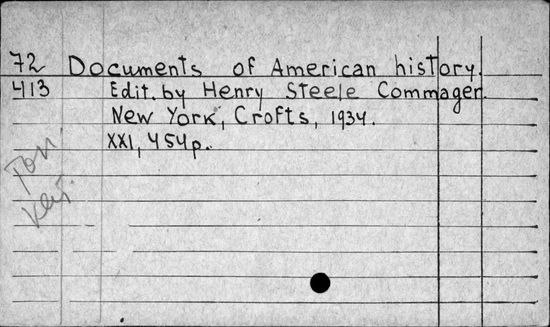 72 Documents of American history.
413 Edit. by Henry Steele Commager.
New York, Crofts, 1934.
XXI, 454p.